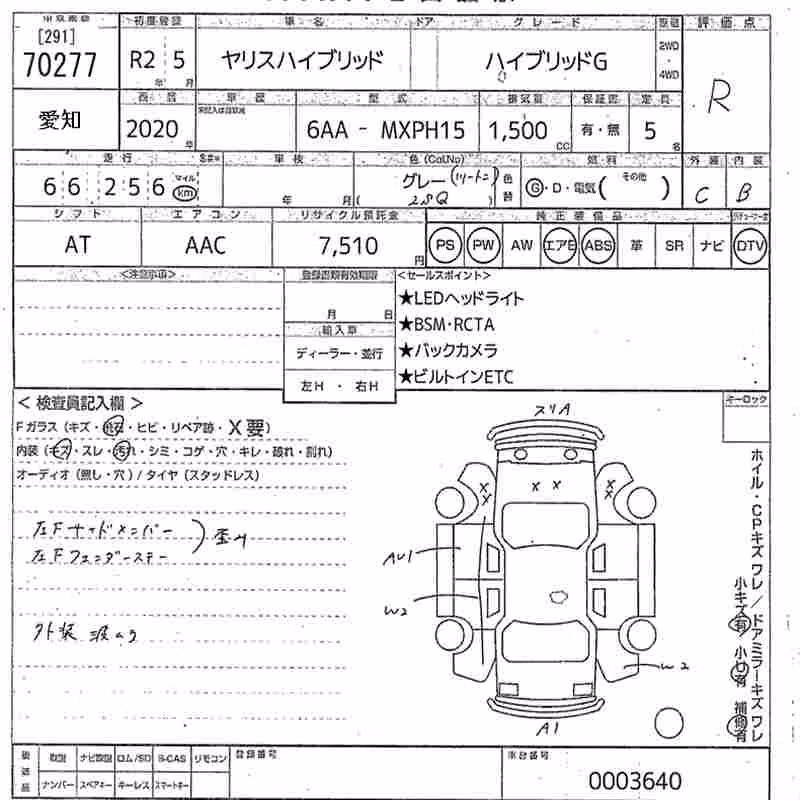 初度登録 車名 ドア グレード 評価点
[291]
70277 R2 5 ヤリスハイブリッド ハイブリッドG 2WD 4WD R
年 月
年 式 型 式 排気量 保証書 定員
愛知 2020 年 6AA - MXPH15 1,500 CC 有・無 5 名
走行 車検 色(Col.No) 燃料 外装 内装
66256 マイル km 年 月 グレー(ツートン) 色替 G・D・電気( その他 ) C B
シフト エアコン リサイクル預託金 純正装備品
AT AAC 7,510 円 PS PW AW エアB ABS 革 SR ナビ DTV
<注意事項> 登録書類有効期限 <セールスポイント>
月 日 ★LEDヘッドライト
輸入車 ★BSM・RCTA
ディーラー・並行 ★バックカメラ
左H ・ 右H ★ビルトインETC
< 検査員記入欄 > キーロック
Fガラス(キズ・飛石・ヒビ・リペア跡・X要)
内装(キズ・スレ・汚れ・シミ・コゲ・穴・キレ・破れ・割れ)
オーディオ(無し・穴)/タイヤ(スタッドレス)
左Fサイドメンバー
左Fフェンダーステー ) 歪み
外装 波ムラ
スリA
X X X X X X
AU1
W2
W2
A1
ホイル・CPキズワレ/ドアミラーキズワレ
小キズ有 小凹有 補修有
後送品 取説 ナビ取説 ロム/SD B-CAS リモコン 登録番号 車台番号
ナンバー スペアキー キーレス スマートキー 0003640